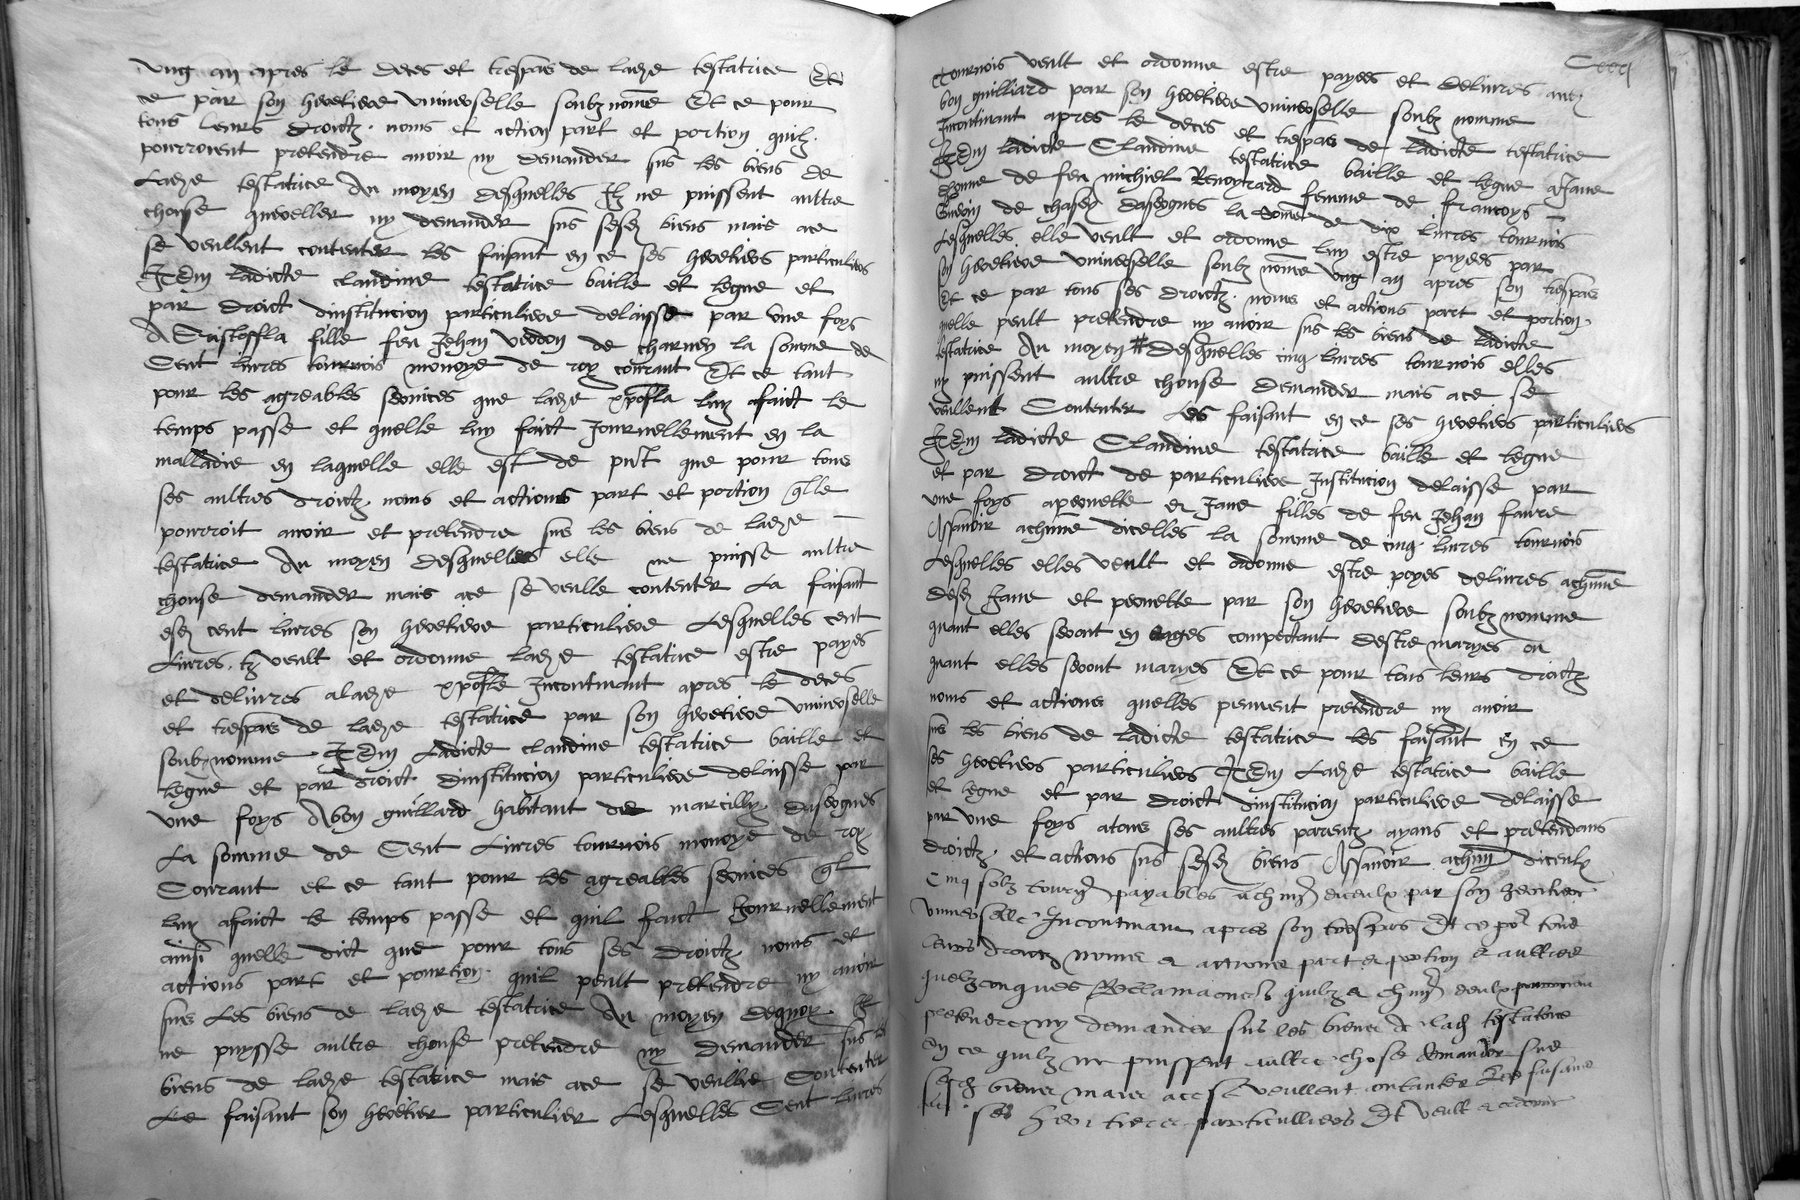 ung an apres le deces et trespas de ladte testatrice Et
ce par son heretiere universelle soubz nomee Et ce pour
tous leurs droictz noms et action part et portion quilz
pourroient pretendre avoir ny demander sus les biens de
Ladte testatrice Au moyen desquelles Ilz ne puissent aultre
chouse quereller ny demander sus sesdz biens mais a ce
se veullent contenter les faisant en ce ses heretiers particuliers
ITEm ladicte claudine testatrice baille et legue et
par droict dinstitucion particuliere delaisse par une foys
A Cristoffla fille feu Jehan verdon de charney la somme de
Cent livres tournois monoye de roy courant Et ce tant
pour les agreables services que ladte xpofla luy a faict le
temps passe et quelle luy faict Journellement en la
malladie en laquelle elle est de pnt que pour tous
ses aultres droictz noms et actions part et portion qlle
pourroit avoir et pretendre sus les biens de ladte
testatrice Au moyen desquelles elle ne puisse aultre
chouse demander mais a ce se veulle contenter La faisant
esdz cent livres son heretiere particuliere Lesquelles cent
Livres tz veult et ordonne ladte testatrice estre payes
et delivres a ladte xpofle Incontinant apres le deces
et trespas de ladte testatrice par son heretiere universelle
soubz nomme ITEm Ladicte claudine testatrice baille et
legue et par droict dinstitucion particuliere delaisse par
une foys A bon guilliard habitant de marcilly
La somme de Cent Livres tournois monoye de roy
Courant et ce tant pour les agreables services ql
luy a faict le temps passe et quil faict Journellement
ainsi quelle dict que pour tous ses droictz noms et
actions part et pourtion quil peult pretendre ny avoir
sus Les biens de ladte testatrice Au moyen dequoy Il
ne puysse aultre chouse pretendre ny demander sus les
biens de ladte testatrice mais a ce se veullie Contenter
Le faisant son heretier particulier Lesquelles Cent livres
Tournois veult et ordonne estre payees et delivres audz
bon guilliard par son heretiere universelle soubz nomme
Incontinant apres le deces et trespas de ladicte testatrice
ITEm ladicte Claudine testatrice baille et legue a Jane
de feu michiel femme de francoys
de la some de dix livres tournois
Lesquelles elle veult et ordonne luy estre payees par
son heretiere universelle soubz nomee ung an apres son trespas
Et ce par tous ses droictz noms et actions part et portion
quelle peult pretendre ny avoir sus les biens de ladicte
testatrice Au moyen desquelles cinq livres tournois elles
ny puissent aultre chouse demander mais a ce se
veullent Contenter Les faisant en ce ses heretiers particuliers
ITEm ladicte Claudine testatrice baille et legue
et par droict de particuliere Institucion delaisse par
une foys a pernette et Jane filles de feu Jehan favre
Assavoir a chune dicelles la somme de cinq livres tournois
Lesquelles elles veult et ordonne estre payes delivres a chune
desdz Jane et pernette par son heretiere soubz nomme
quant elles seront en ages competant destre maryes ou
quant elles seront maryes Et ce pour tous leurs droictz
noms et actions quelles peuvent pretendre ny avoir
sus les biens de ladicte testatrice les faisant En ce
ses heretiers particuliers ITEm Ladte testatrice baille
et legue et par droict dinstitucion particuliere delaisse
par une foys a tous ses aultres parentz ayans et pretendans
droictz et actions sus sesdz biens Assavoir a chun diceulx
Cinq solz tourn payables a chun diceulx par son heritiere
universelle Incontinant apres son trespas Et ce por tous
leurs droictz noms et actions part et portion et aultres
quelzconques Reclamacions quilz et chun deulx
pretendre ny demander sus les biens de lad testatrice
En ce quilz ne puissent aultre chose demander sus
sesd biens mais a ce se veullent contanter Les faisans
ses heritiers particulliers Et veult et ordonne